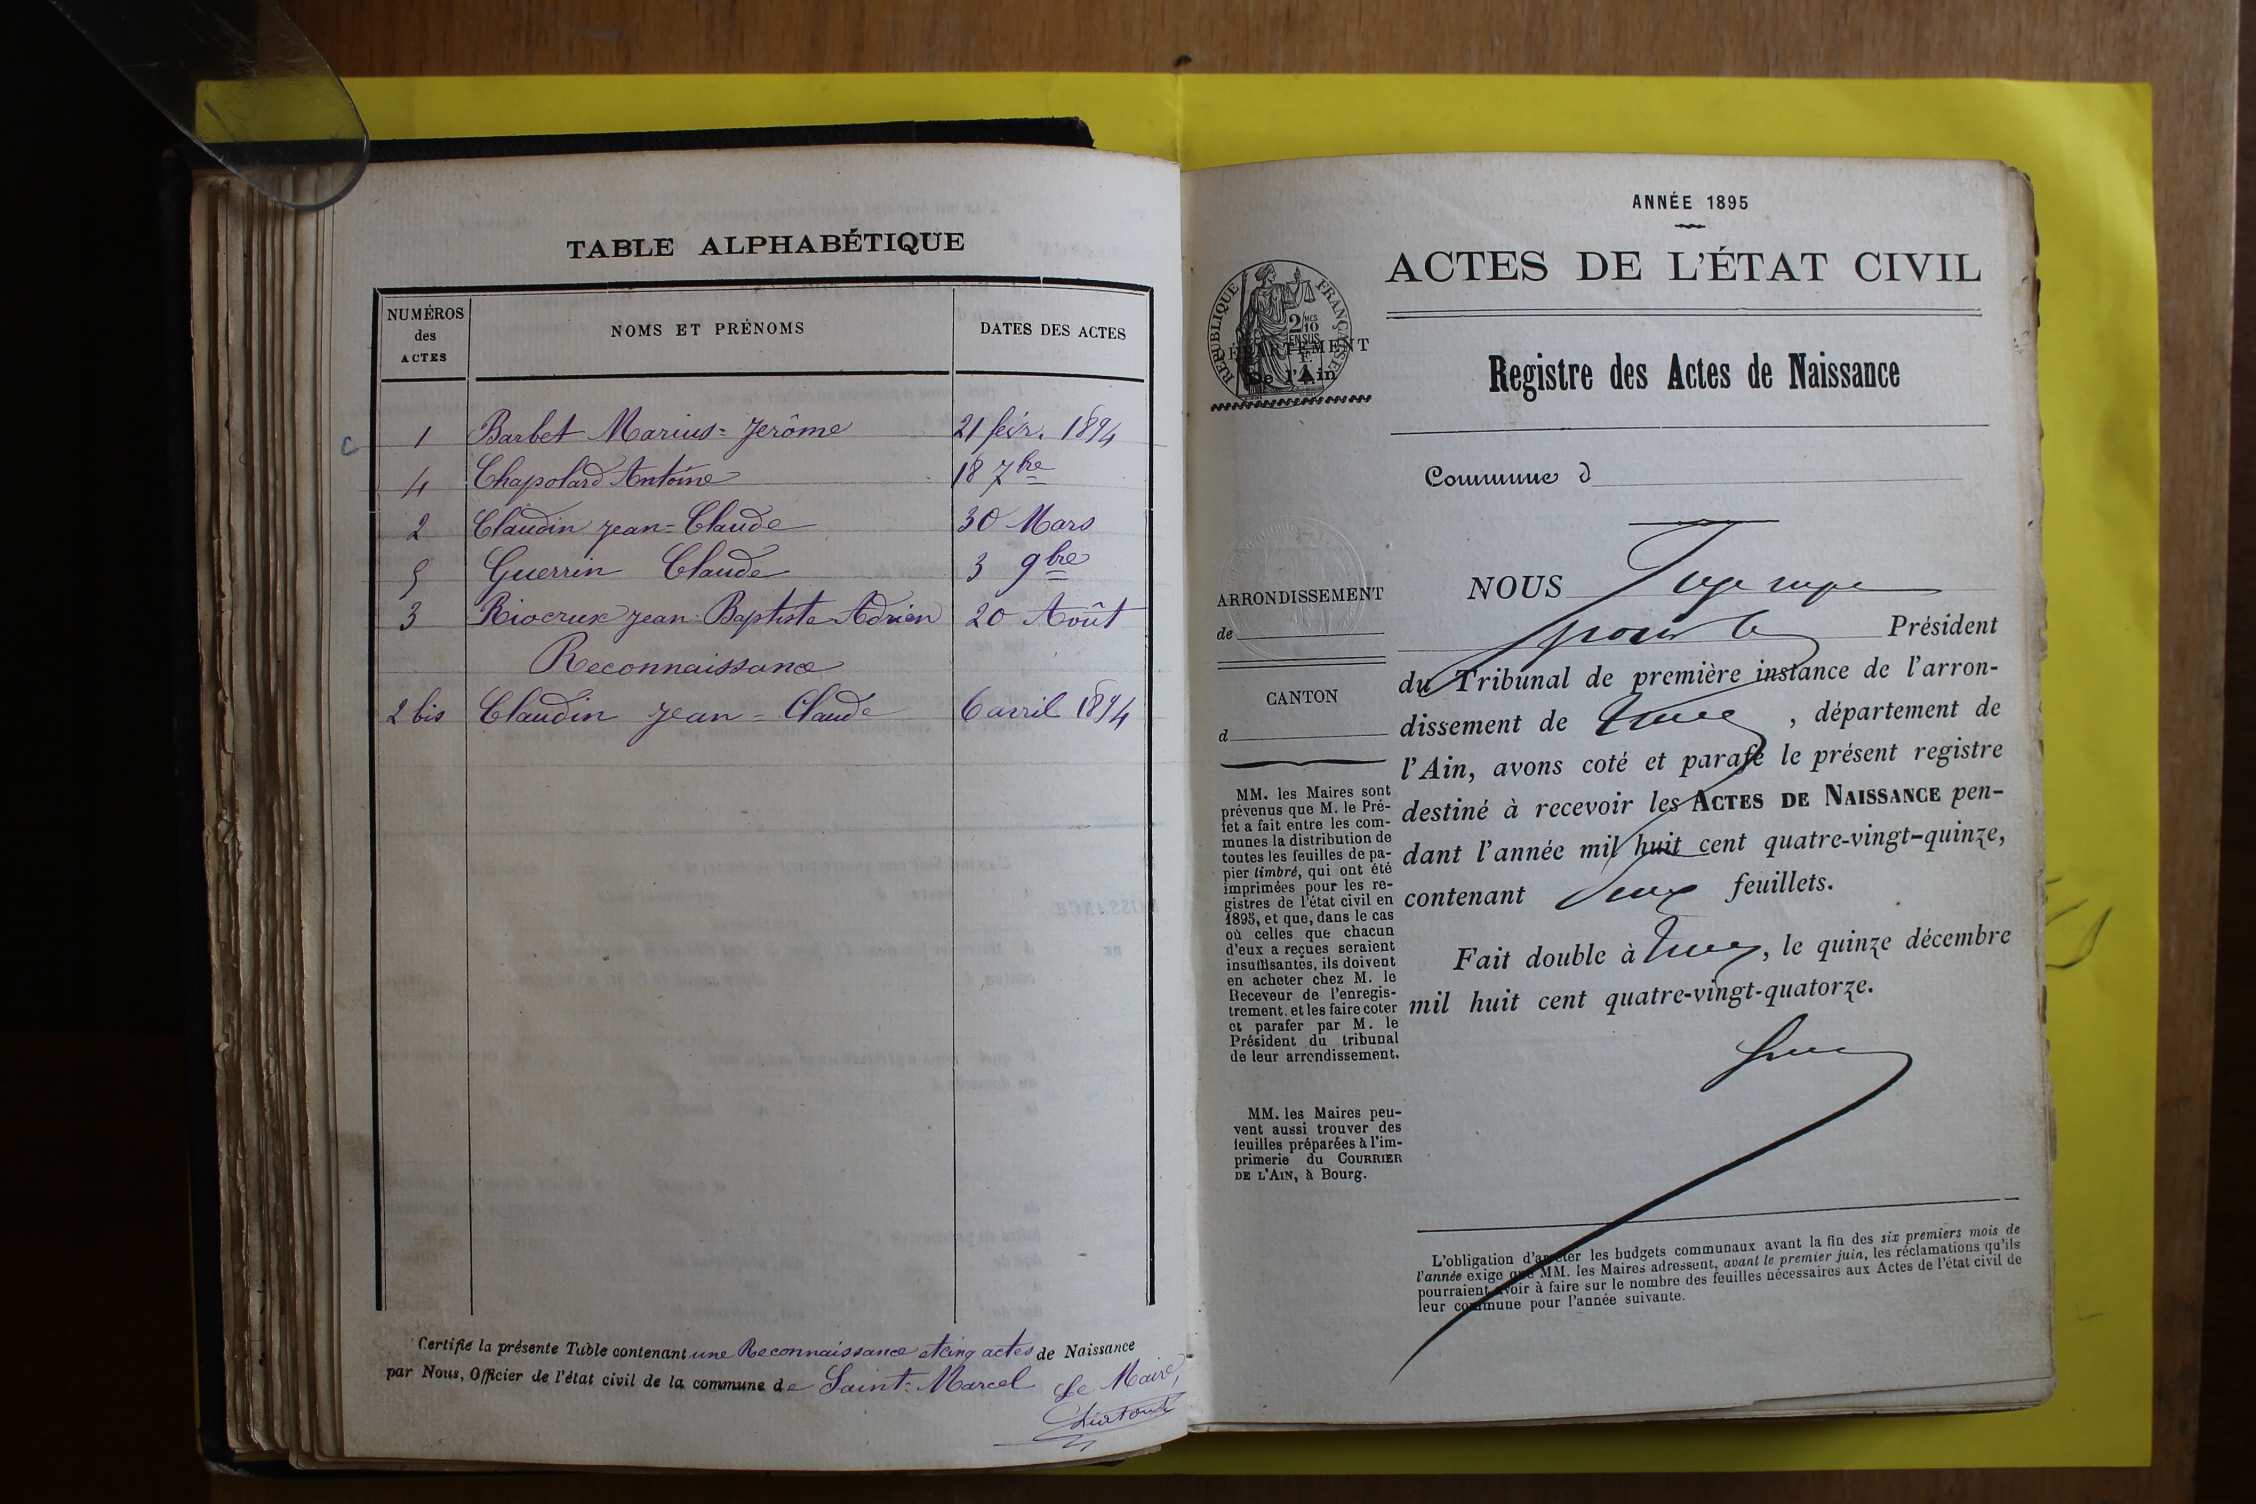 TABLE ALPHABÉTIQUE
NUMÉROS des ACTES NOMS ET PRÉNOMS DATES DES ACTES
C 1 Barbet Marius=Jerôme 21 févr. 1894
4 Chapolard Antoine 18 7bre
2 Claudin Jean=Claude 30 Mars
5 Guerrin Claude 3 9bre
3 Riocreux Jean-Baptiste Adrien 20 Août
Reconnaissance
2 bis Claudin Jean=Claude 6 avril 1894
Certifié la présente Table contenant une Reconnaissance et cinq actes de Naissance
par Nous, Officier de l'état civil de la commune de Saint-Marcel Le Maire,
ANNÉE 1895
ACTES DE L'ÉTAT CIVIL
RÉPUBLIQUE FRANÇAISE
2/10 MES EN SUS
DÉPARTEMENT
De l'Ain
Registre des Actes de Naissance
Commune d
ARRONDISSEMENT
de
CANTON
d
MM. les Maires sont
prévenus que M. le Pré-
fet a fait entre les com-
munes la distribution de
toutes les feuilles de pa-
pier timbré, qui ont été
imprimées pour les re-
gistres de l'état civil en
1895, et que, dans le cas
où celles que chacun
d'eux a reçues seraient
insuffisantes, ils doivent
en acheter chez M. le
Receveur de l'enregis-
trement, et les faire coter
et parafer par M. le
Président du tribunal
de leur arrondissement.
MM. les Maires peu-
vent aussi trouver des
feuilles préparées à l'im-
primerie du COURRIER
DE L'AIN, à Bourg.
NOUS Juge
pour le Président
du Tribunal de première instance de l'arron-
dissement de , département de
l'Ain, avons coté et parafé le présent registre
destiné à recevoir les ACTES DE NAISSANCE pen-
dant l'année mil huit cent quatre-vingt-quinze,
contenant deux feuillets.
Fait double à , le quinze décembre
mil huit cent quatre-vingt-quatorze.
L'obligation d'arrêter les budgets communaux avant la fin des six premiers mois de
l'année exige que MM. les Maires adressent, avant le premier juin, les réclamations qu'ils
pourraient avoir à faire sur le nombre des feuilles nécessaires aux Actes de l'état civil de
leur commune pour l'année suivante.